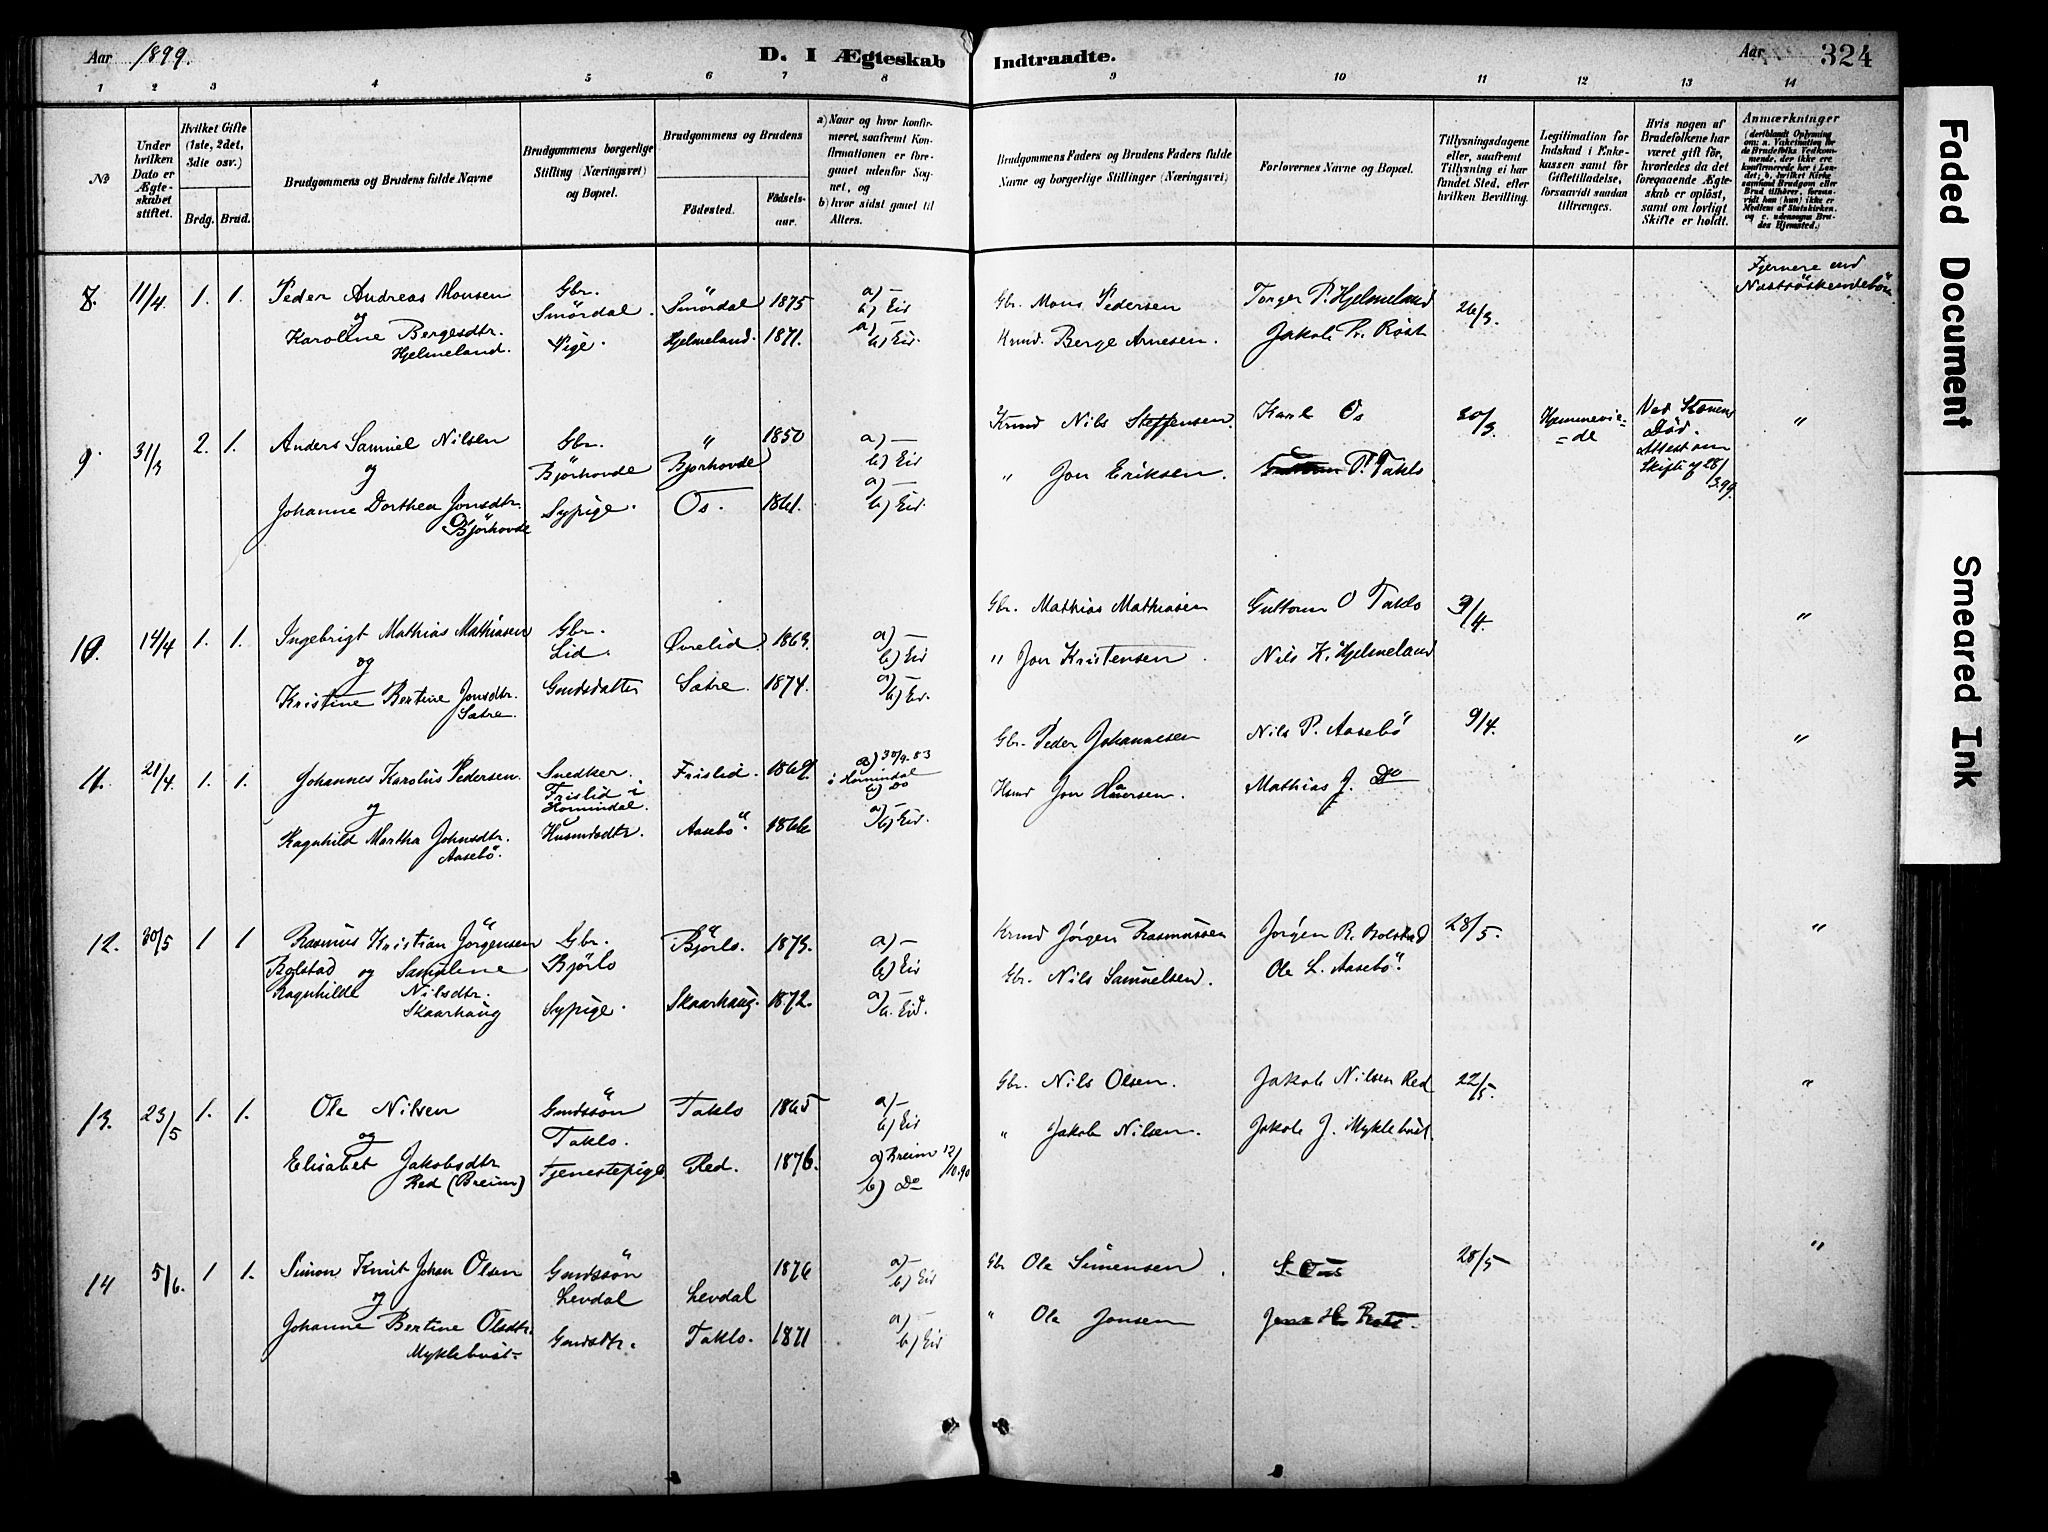 Aar 1899.
D. I Ægteskab Indtraadte.
Aar
324
1 2 3 4 5 6 7 8 9 10 11 12 13 14
No
Under hvilken Dato er Ægteskabet stiftet.
Hvilket Gifte (1ste, 2det, 3die osv.)
Brdg. Brud.
Brudgommens og Brudens fulde Navne
Brudgommens borgerlige Stilling (Næringsvei) og Bopæl.
Brudgommens og Brudens
Födested. Födselsaar.
a) Naar og hvor konfirmeret, saafremt Konfirmationen er foregaaet udenfor Sognet, og
b) hvor sidst gaaet til Alters.
Brudgommens Faders og Brudens Faders fulde Navne og borgerlige Stillinger (Næringsvei)
Forlovernes Navne og Bopæl.
Tillysningsdagene eller, saafremt Tillysning ei har fundet Sted, efter hvilken Bevilling.
Legitimation for Indskud i Enkekassen samt for Giftetilladelse, forsaavidt saadan tiltrænges.
Hvis nogen af Brudefolkene har været gift för, hvorledes da det foregaaende Ægteskab er oplöst, samt om lovligt Skifte er holdt.
Anmærkninger (deriblandt Oplysning om: a. Vaksination for de Brudefolks Vedkommende, der ikke ere konfirmerede her i Landet; b. hvilket Kirkesamfund Brudgom eller Brud tilhörer, forsaavidt han (hun) ikke er Medlem af Statskirken, og c. udensogns Brudes Hjemsted.)
8. 11/4. 1. 1. Peder Andreas Monsen Gbr. Smördal. Smördal 1875 a) — b) Eid Gbr. Mons Pedersen Torger P. Hjelmeland 26/3. Fjernere end Næstsöskendebörn
og
Karoline Bergesdtr. Hjelmeland. Pige. Hjelmeland. 1871. a) b) Eid. Krmd. Berge Arnesen. Jakob Pr. Röst
9 31/3 2. 1. Anders Samuel Nilsen Gbr. Björhovde " Bjørhovde 1850 a) — b) Eid Krmd Nils Steffensen. Karl Os 30/3. Ved Konens Död. Attest om Skifte af 28/3.99. "
og
Johanne Dorthea Jonsdtr. Björhovde Sypige. Os. 1861. a) — b) Eid. " Jon Eriksen. P. Taklo
10. 14/4 1. 1. Ingebrigt Mathias Mathiasen Gbr. Lid. Øvrelid 1863. a) — b) Eid Gbr. Mathias Mathiasen Guttorm O Taklo 3/4. "
og
Kristine Bertine Jonsdtr. Sætre. Gmdsdatter Sætre. 1874. a) — b) Eid. " Jon Kristensen. Nils K. Hjelmeland
11. 21/4. 1. 1. Johannes Karolus Pedersen. Snedker. Frislid i Hornindal. Frislid. 1869. a) 30/9.83 i Hornindal b) Do Gbr. Peder Johannesen Nils P. Aasebö 9/4. "
og
Ragnhild Martha Johnsdtr. Aasebö. Husmdsdtr. Aasebö. 1866 a) — b) Eid. Hsmd Jon Mathias J. Do
12. 30/5 1 1 Rasmus Kristian Jörgensen Bolstad Gbr. Björlo Björlo. 1873. a) — b) Eid Krmd Jörgen Rasmussen Jörgen R. Bolstad 28/5. "
og Samueline Ragnhilde Nilsdtr. Skaarhaug Sypige. Skaarhaug. 1872. a) — b. Eid. Gbr. Nils Samuelsen. Ole L. Aasebö.
13. 23/5 1. 1. Ole Nilsen Gmdssön Taklo. Taklo 1865 a) — b) Eid Gbr. Nils Olsen. Jakob Nilsen Red 22/5. "
og
Elisabet Jakobsdtr Red (Breim) Tjenestepige. Red. 1876. a) Breim 12/10.90 b) Do " Jakob Nilsen. Jakob J. Myklebust.
14 5/6. 1 1. Simon Knut Johan Olsen Gmdssön Levdal Levdal 1876 a) — b) Eid Gbr Ole Simensen. 28/5 "
og
Johanne Bertine Olsdtr. Myklebust Gmdsdtr. Taklo. 1871 a) — b) Eid " Ole Jonsen
Faded Document
Smeared Ink